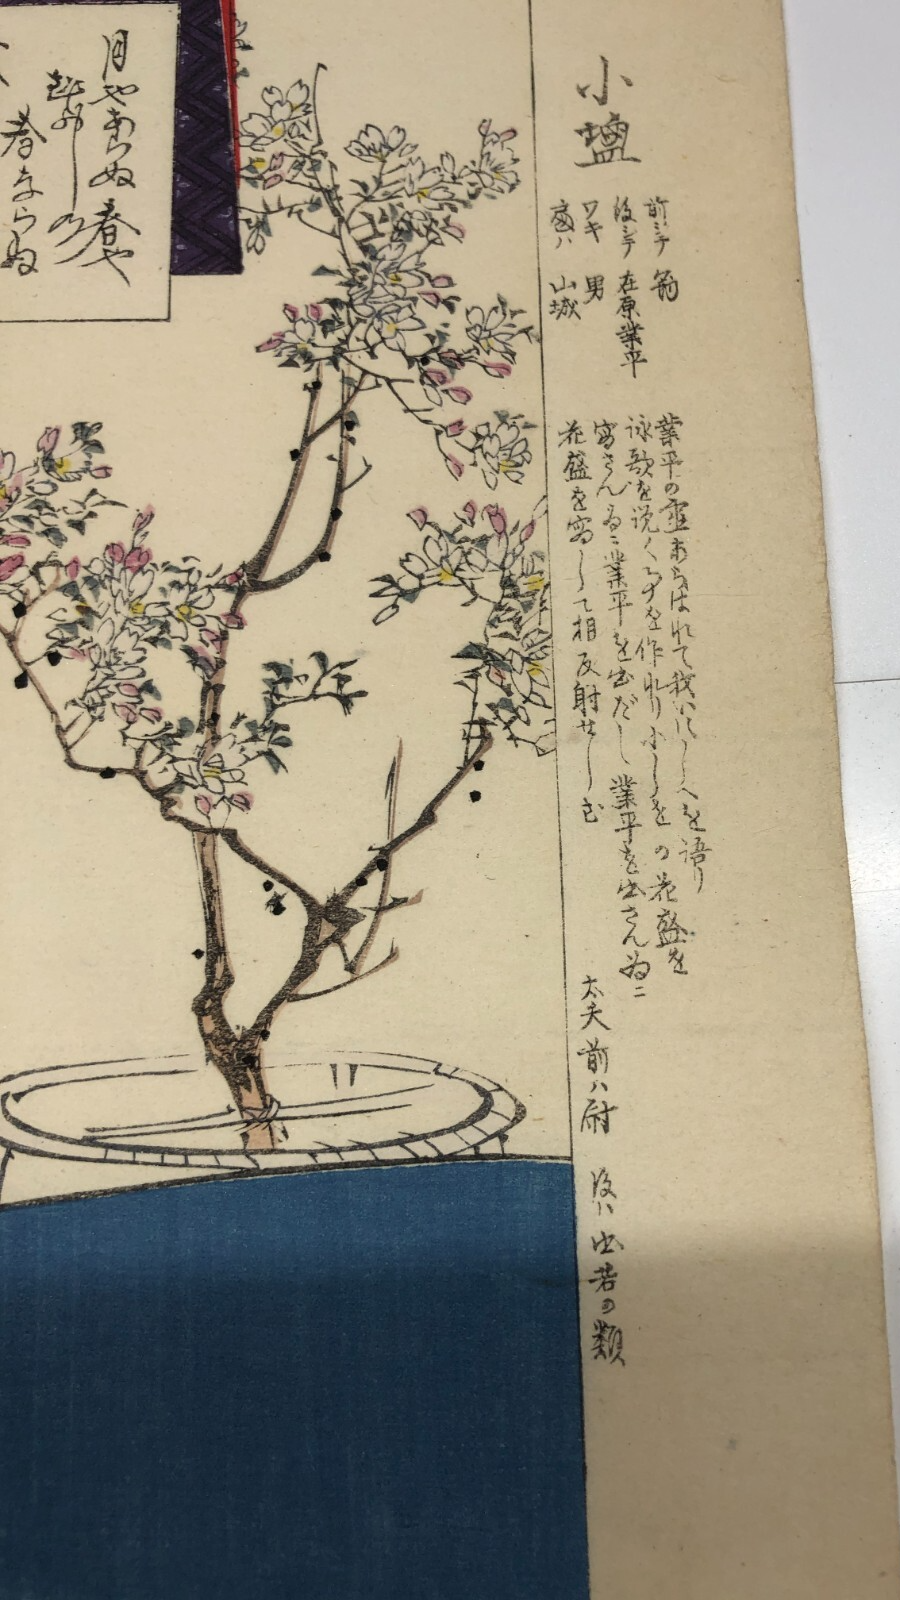 小塩
前シテ 翁
後シテ 在原業平
ワキ 男
処ハ 山城
業平の霊あらはれて我いにしへを語り
詠歌を説く事を作れり小しをの花盛を
写さん為ニ業平を出だし業平を出さん為ニ
花盛を写して相反射せしむ
太夫 前ハ尉 後ハ 若の類
月やあらぬ春や
春ならぬ